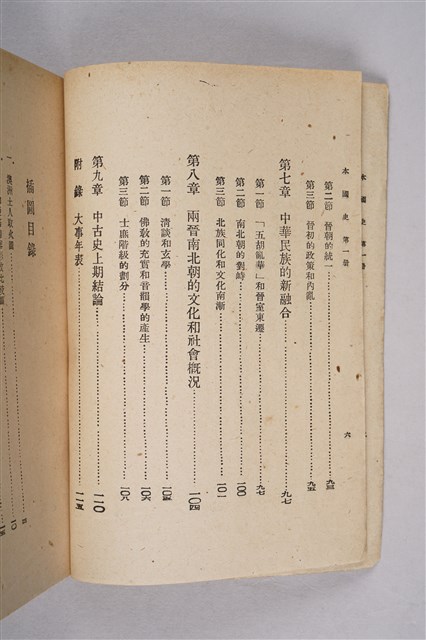 本國史 第一册
六
第二節 晉朝的統一 九三
第三節 晉初的政策和內亂 九五
第七章 中華民族的新融合 九七
第一節 「五胡亂華」和晉室東遷 九七
第二節 南北朝的對峙 一〇〇
第三節 北族同化和文化南漸 一〇一
第八章 兩晉南北朝的文化和社會槪況 一〇四
第一節 淸談和玄學
第二節 佛敎的充實和音韻學的產生 一〇六
第三節 士庶階級的劃分 一〇八
第九章 中古史上期結論 一一〇
附錄 大事年表 一一五
插圖目錄
一、澳洲土人取火圖